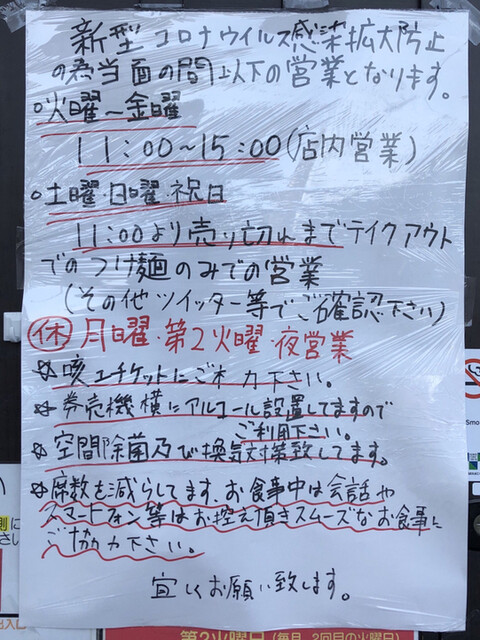 新型コロナウイルス感染拡大防止
の為当面の間以下の営業となります。
○火曜〜金曜
11:00〜15:00(店内営業)
○土曜・日曜・祝日
11:00より売り切れまでテイクアウト
でのつけ麺のみでの営業
(その他ツイッター等でご確認下さい)
㊡月曜・第2火曜・夜営業
☆咳エチケットにご協力下さい。
☆券売機横にアルコール設置してますので
ご利用下さい。
☆空間除菌及び換気対策致してます。
☆席数も減らしてます、お食事中は会話や
スマートフォン等はお控え頂きスムーズなお食事に
ご協力下さい。
宜しくお願い致します。
第2火曜日(毎月、2回目の火曜日)